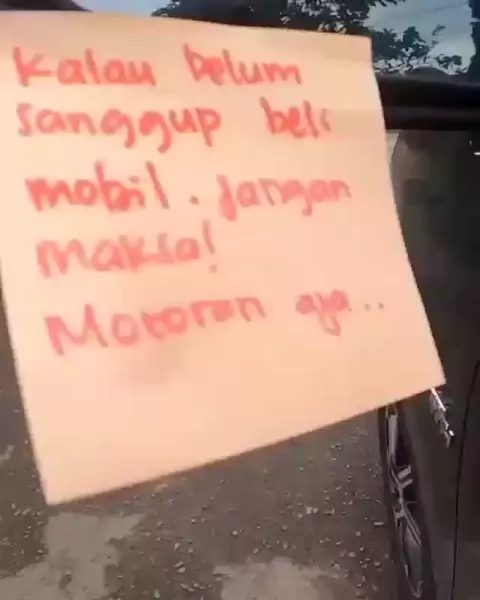 Kalau belum
sanggup beli
mobil. Jangan
maksa!
Motoran aja..